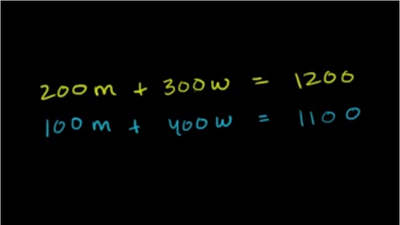 200m + 300w = 1200
100m + 400w = 1100